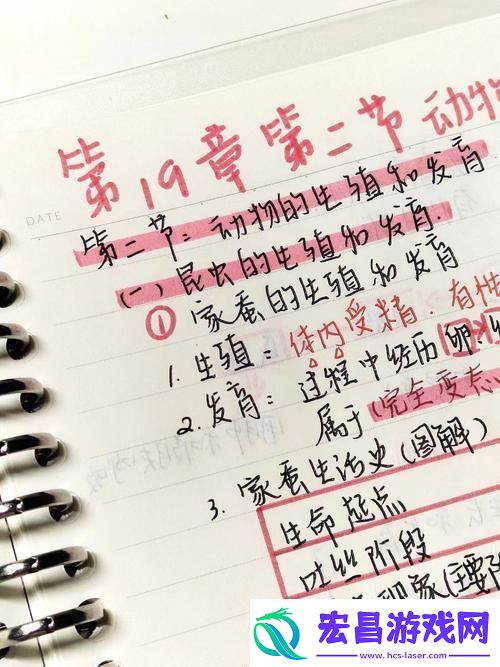 第19章第二节动物
DATE
第二节：动物的生殖和发育.
(一)昆虫的生殖和发育.
① 家蚕的生殖和发育
1. 生殖：体内受精．有性
2. 发育：过程中经历卵．
属于(完全变态
3. 家蚕生活史(图解)
生命起点
吐丝阶段
宏昌游戏网
www.hcs-laser.com